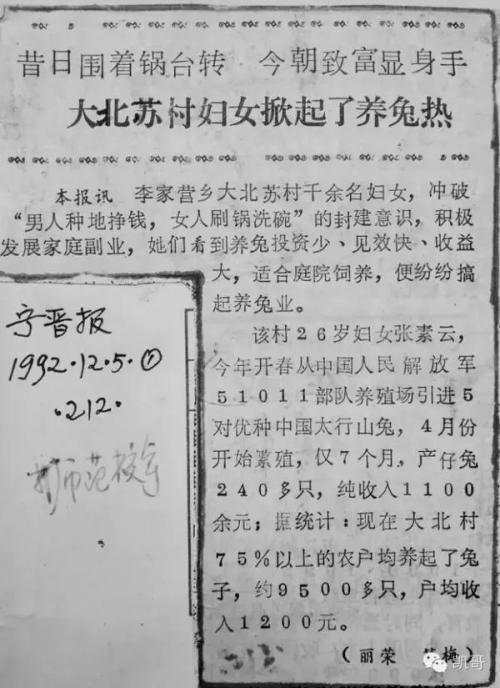 昔日围着锅台转 今朝致富显身手
大北苏村妇女掀起了养兔热
本报讯 李家营乡大北苏村千余名妇女，冲破
“男人种地挣钱，女人刷锅洗碗”的封建意识，积极
发展家庭副业，她们看到养兔投资少、见效快、收益
大，适合庭院饲养，便纷纷搞
起养兔业。
该村26岁妇女张素云，
今年开春从中国人民解放军
51011部队养殖场引进5
对优种中国太行山兔，4月份
开始繁殖，仅7个月，产仔兔
240多只，纯收入1100
余元；据统计：现在大北村
75%以上的农户均养起了兔
子，约9500多只，户均收
入1200元。
（丽荣 梅）
宁晋报
1992.12.5.①
.212.
师范校
212
凯哥